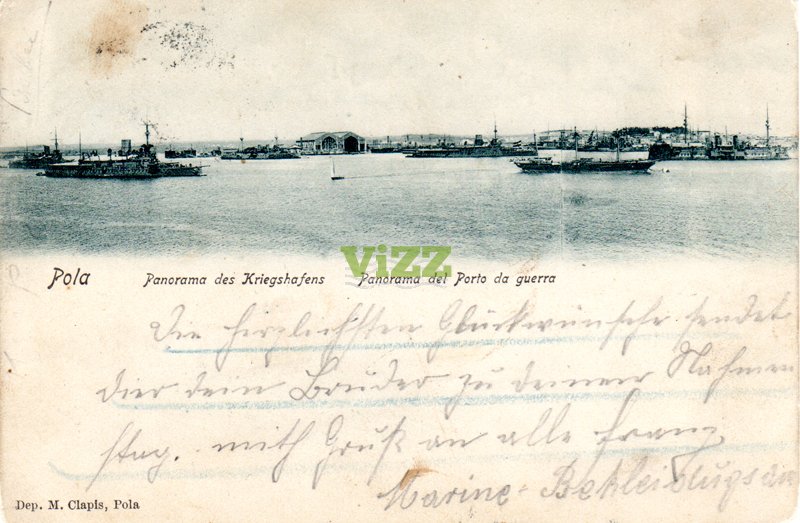 Pola Panorama des Kriegshafens Panorama del Porto da guerra
ViZZ
Die herzlichsten Glückwünsche sendet
dier dein Bruder zu deinem Nahmen
stag. mith Gruß an alle Franz
Marine-
Dep. M. Clapis, Pola